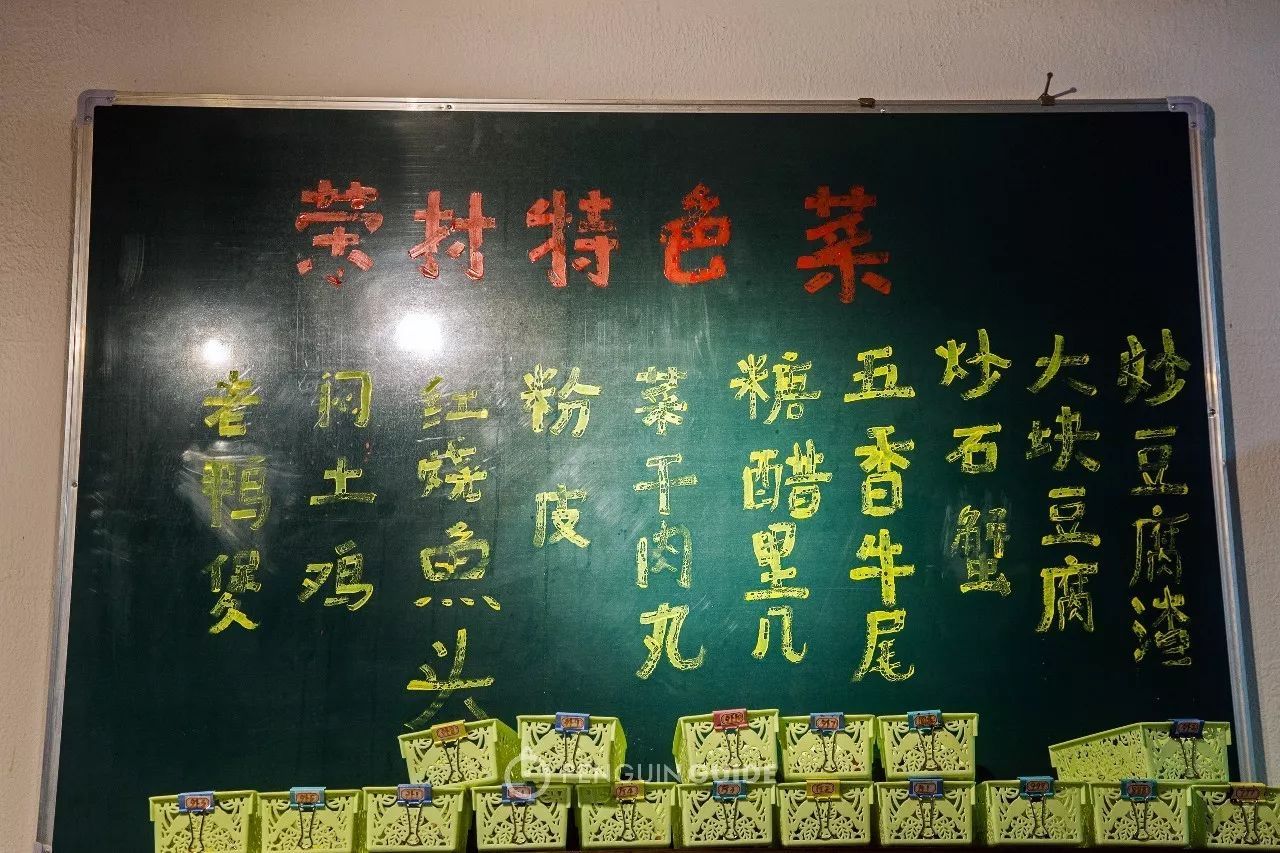 荣村特色菜
老鸭煲
闷土鸡
红烧鱼头
粉皮
菜干肉丸
糖醋里几
五香牛尾
炒石蟹
大块豆腐
炒豆腐渣
PENGUIN GUIDE